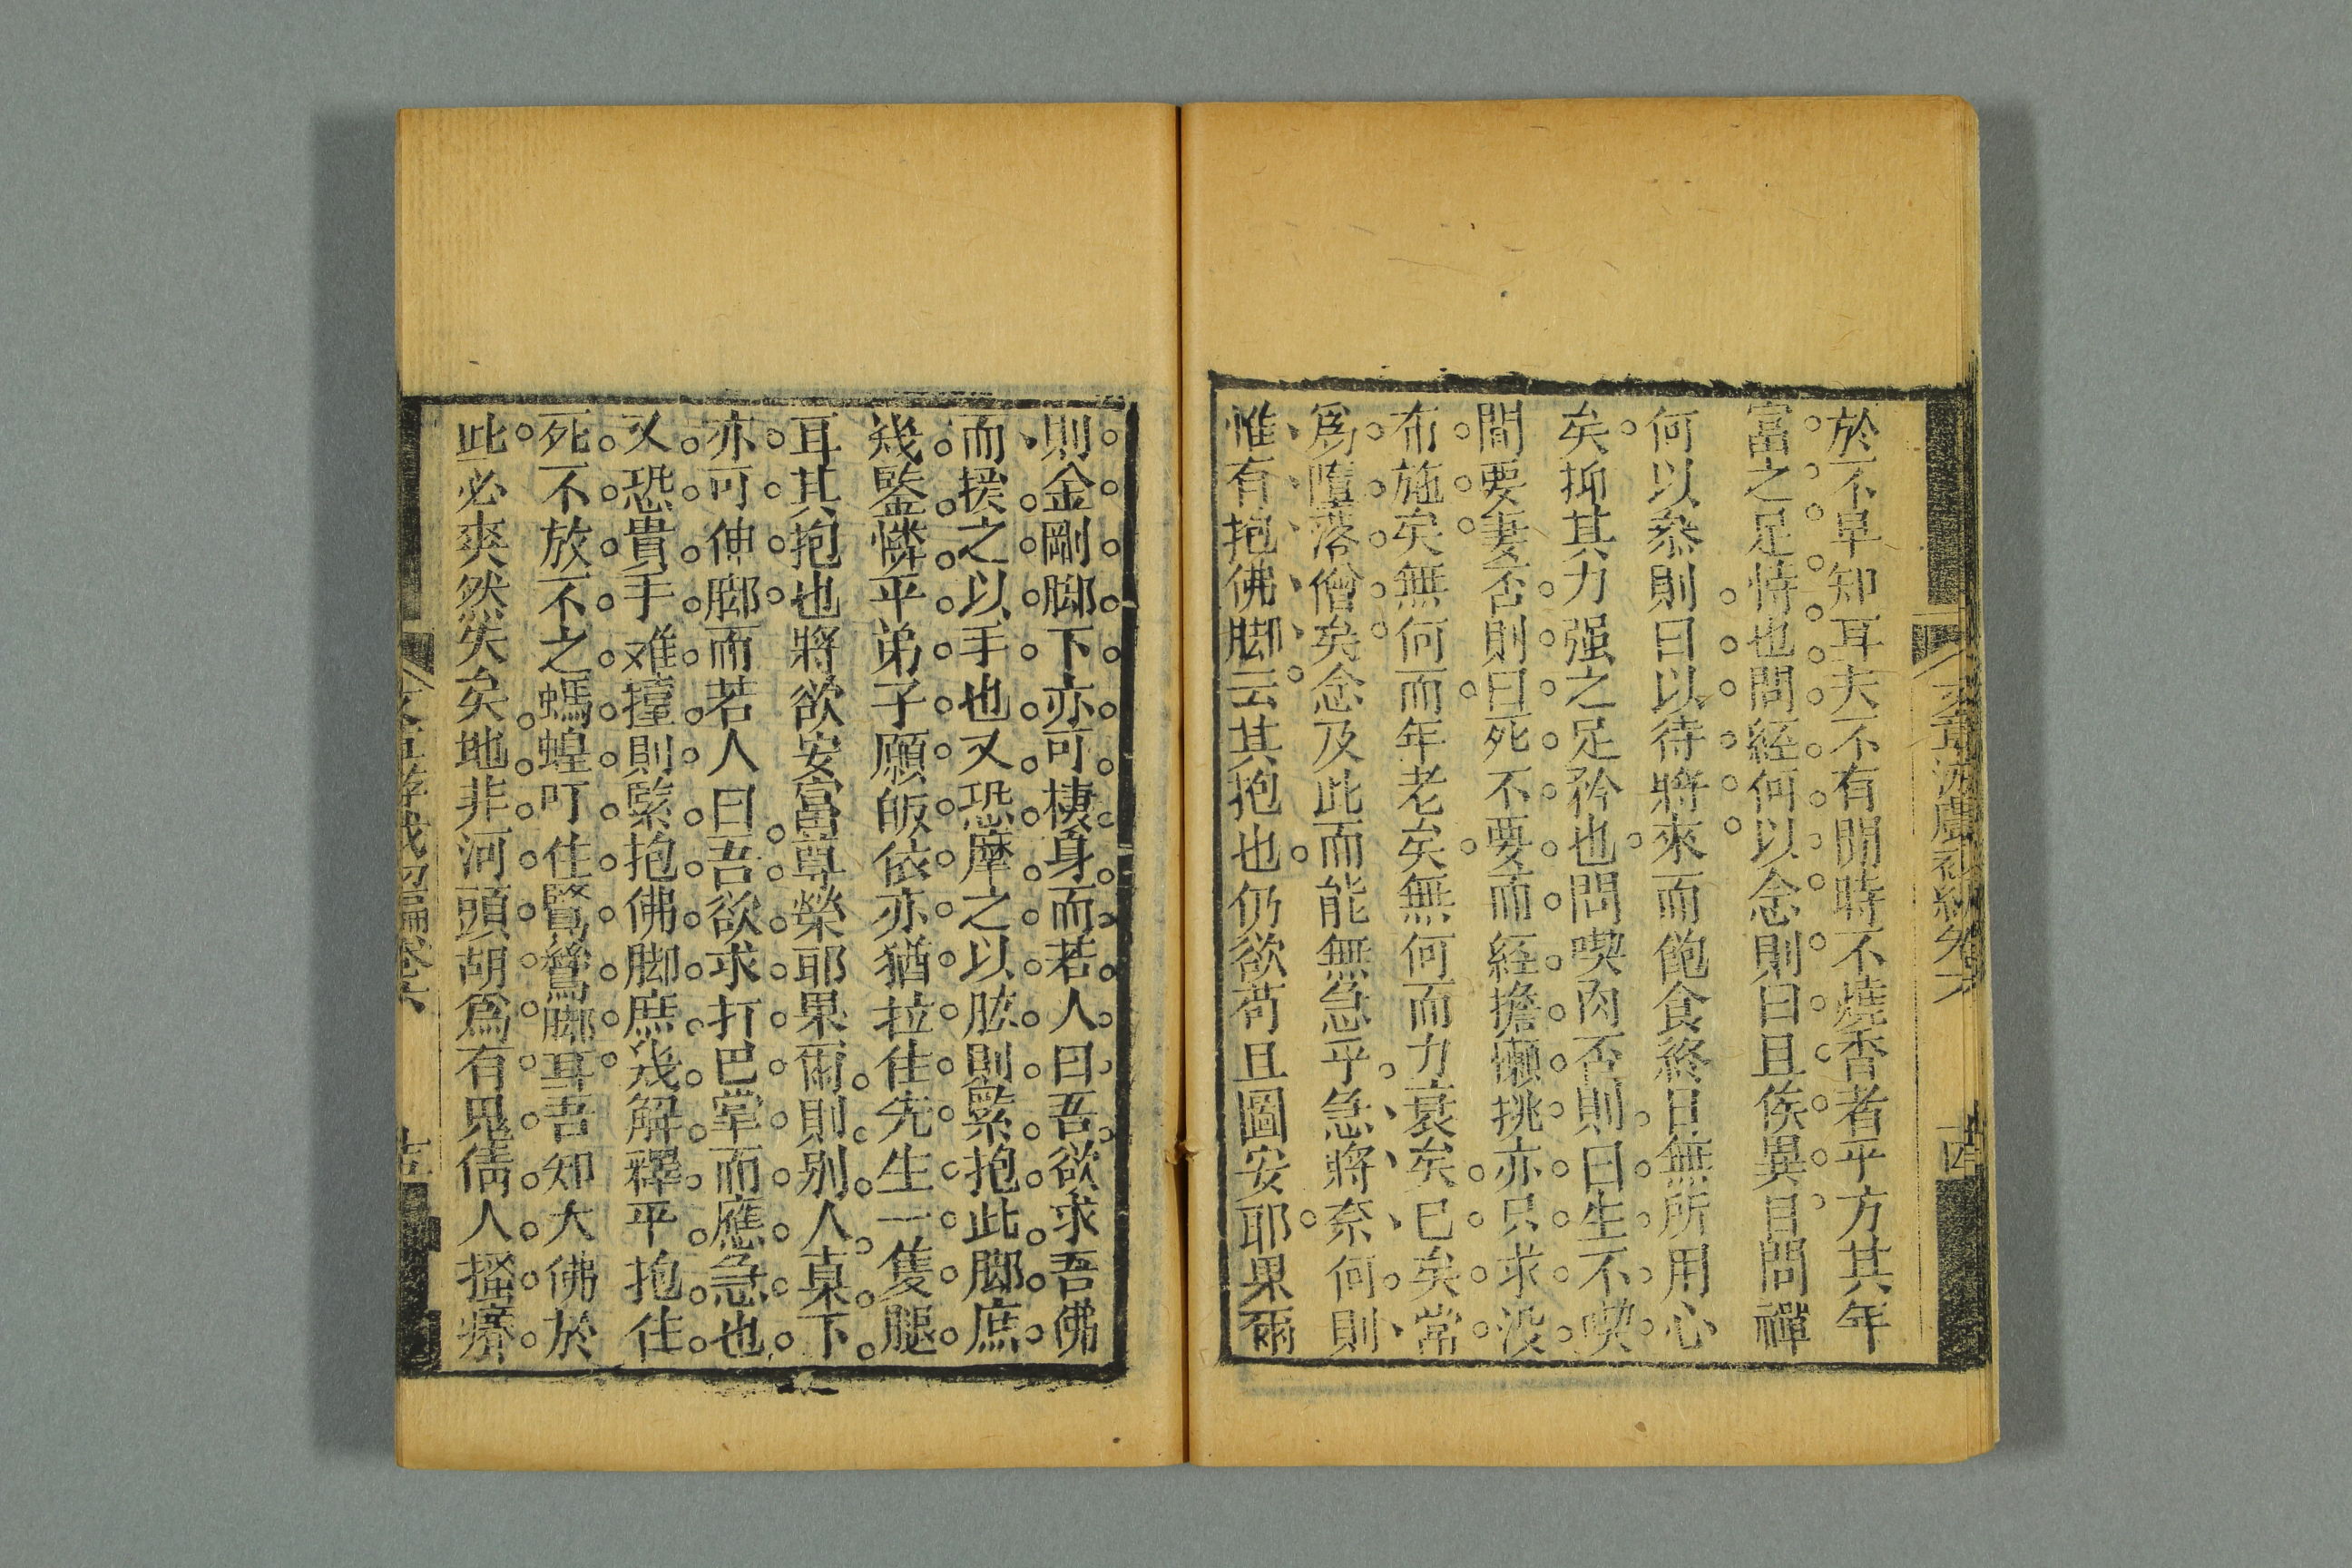 於不早知耳夫不有閒時不燒香者乎方其年
富之足恃也問経何以念則曰且俟異日問禪
何以叅則曰以待將來而飽食終日無所用心
矣抑其力强之足矜也問喫肉否則曰生不喫
問要妻否則曰死不要而経擔懶挑亦只求没
布施矣無何而年老矣無何而力衰矣已矣常
爲墮落僧矣念及此而能無急乎急將奈何則
惟有抱佛脚云其抱也仍欲苟且圖安耶果爾
十四
則金剛脚下亦可棲身而若人曰吾欲求吾佛
而援之以手也又恐摩之以肱則緊抱此脚庶
幾鑒憐乎弟子願皈依亦猶拉住先生一隻腿
耳其抱也將欲安富尊榮耶果爾則别人桌下
亦可伸脚而若人曰吾欲求打巴掌而應急也
又恐貴手难擡則緊抱佛脚庶幾解釋乎抱住
死不放不之螞蝗叮住鷺鷥脚耳吾知大佛於
此必爽然失矣地非河頭胡爲有鬼倩人搔癢
初編卷六
十五